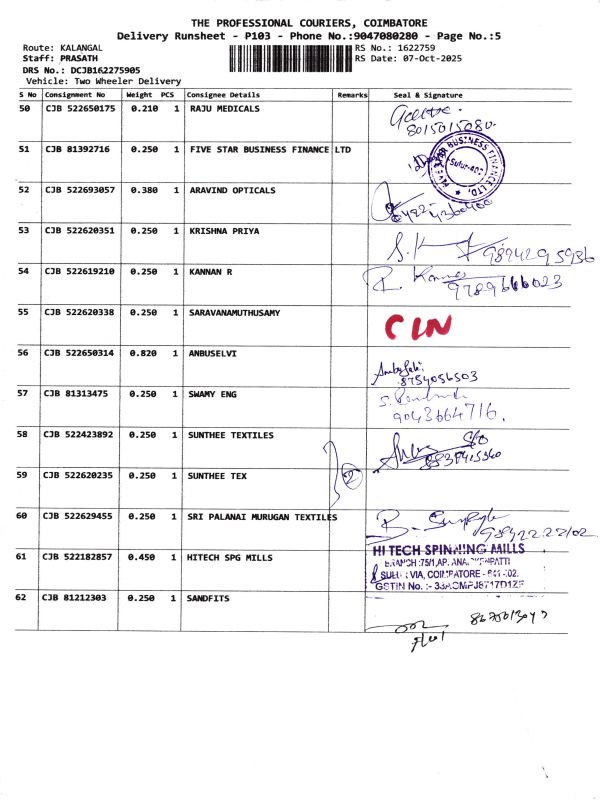 THE PROFESSIONAL COURIERS, COIMBATORE
Delivery Runsheet - P103 - Phone No.:9047080280 - Page No.:5
Route: KALANGAL RS No.: 1622759
Staff: PRASATH RS Date: 07-Oct-2025
DRS No.: DCJB162275905
Vehicle: Two Wheeler Delivery
S No Consignment No Weight PCS Consignee Details Remarks Seal & Signature
50 CJB 522650175 0.210 1 RAJU MEDICALS
8015015080.
51 CJB 81392716 0.250 1 FIVE STAR BUSINESS FINANCE LTD
FIVE STAR BUSINESS FINANCE LTD.
52 CJB 522693057 0.380 1 ARAVIND OPTICALS
53 CJB 522620351 0.250 1 KRISHNA PRIYA
9894295936
54 CJB 522619210 0.250 1 KANNAN R
9789666023
55 CJB 522620338 0.250 1 SARAVANAMUTHUSAMY
CLN
56 CJB 522650314 0.820 1 ANBUSELVI
8754056503
57 CJB 81313475 0.250 1 SWAMY ENG
9043664716.
58 CJB 522423892 0.250 1 SUNTHEE TEXTILES
2
59 CJB 522620235 0.250 1 SUNTHEE TEX
60 CJB 522629455 0.250 1 SRI PALANAI MURUGAN TEXTILES
61 CJB 522182857 0.450 1 HITECH SPG MILLS
HI TECH SPINNING MILLS
62 CJB 81212303 0.250 1 SANDFITS